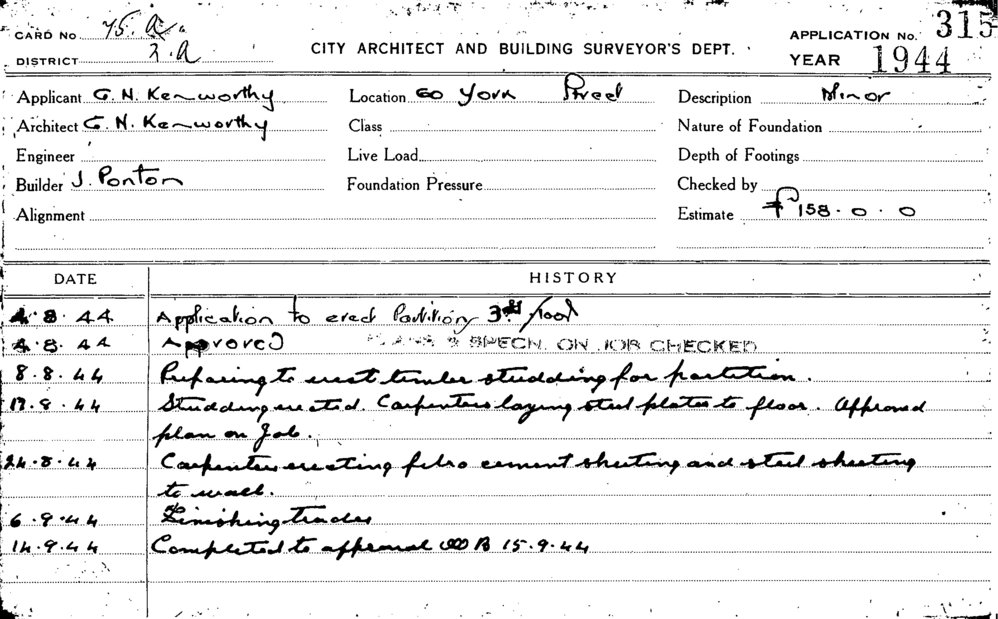 CARD No 75. A.
DISTRICT 2.A
CITY ARCHITECT AND BUILDING SURVEYOR'S DEPT.
APPLICATION No. 315
YEAR 1944
Applicant G. N. Kenworthy
Location 60 York Street
Description Minor
Architect G. N. Kenworthy
Class
Nature of Foundation
Engineer
Live Load
Depth of Footings
Builder J. Ponton
Foundation Pressure
Checked by
Alignment
Estimate £158.0.0
DATE HISTORY
4.8.44 Application to erect Partition, 3rd floor
4.8.44 Approved PLANS & SPECN. ON JOB CHECKED
8.8.44 Preparing to erect timber studding for partition.
17.8.44 Studding erected. Carpenters laying steel plates to floor. Approved
plan on Job.
24.8.44 Carpenters erecting fibro cement sheeting and steel sheeting
to wall.
6.9.44 Finishing trades
14.9.44 Completed to approval 15.9.44